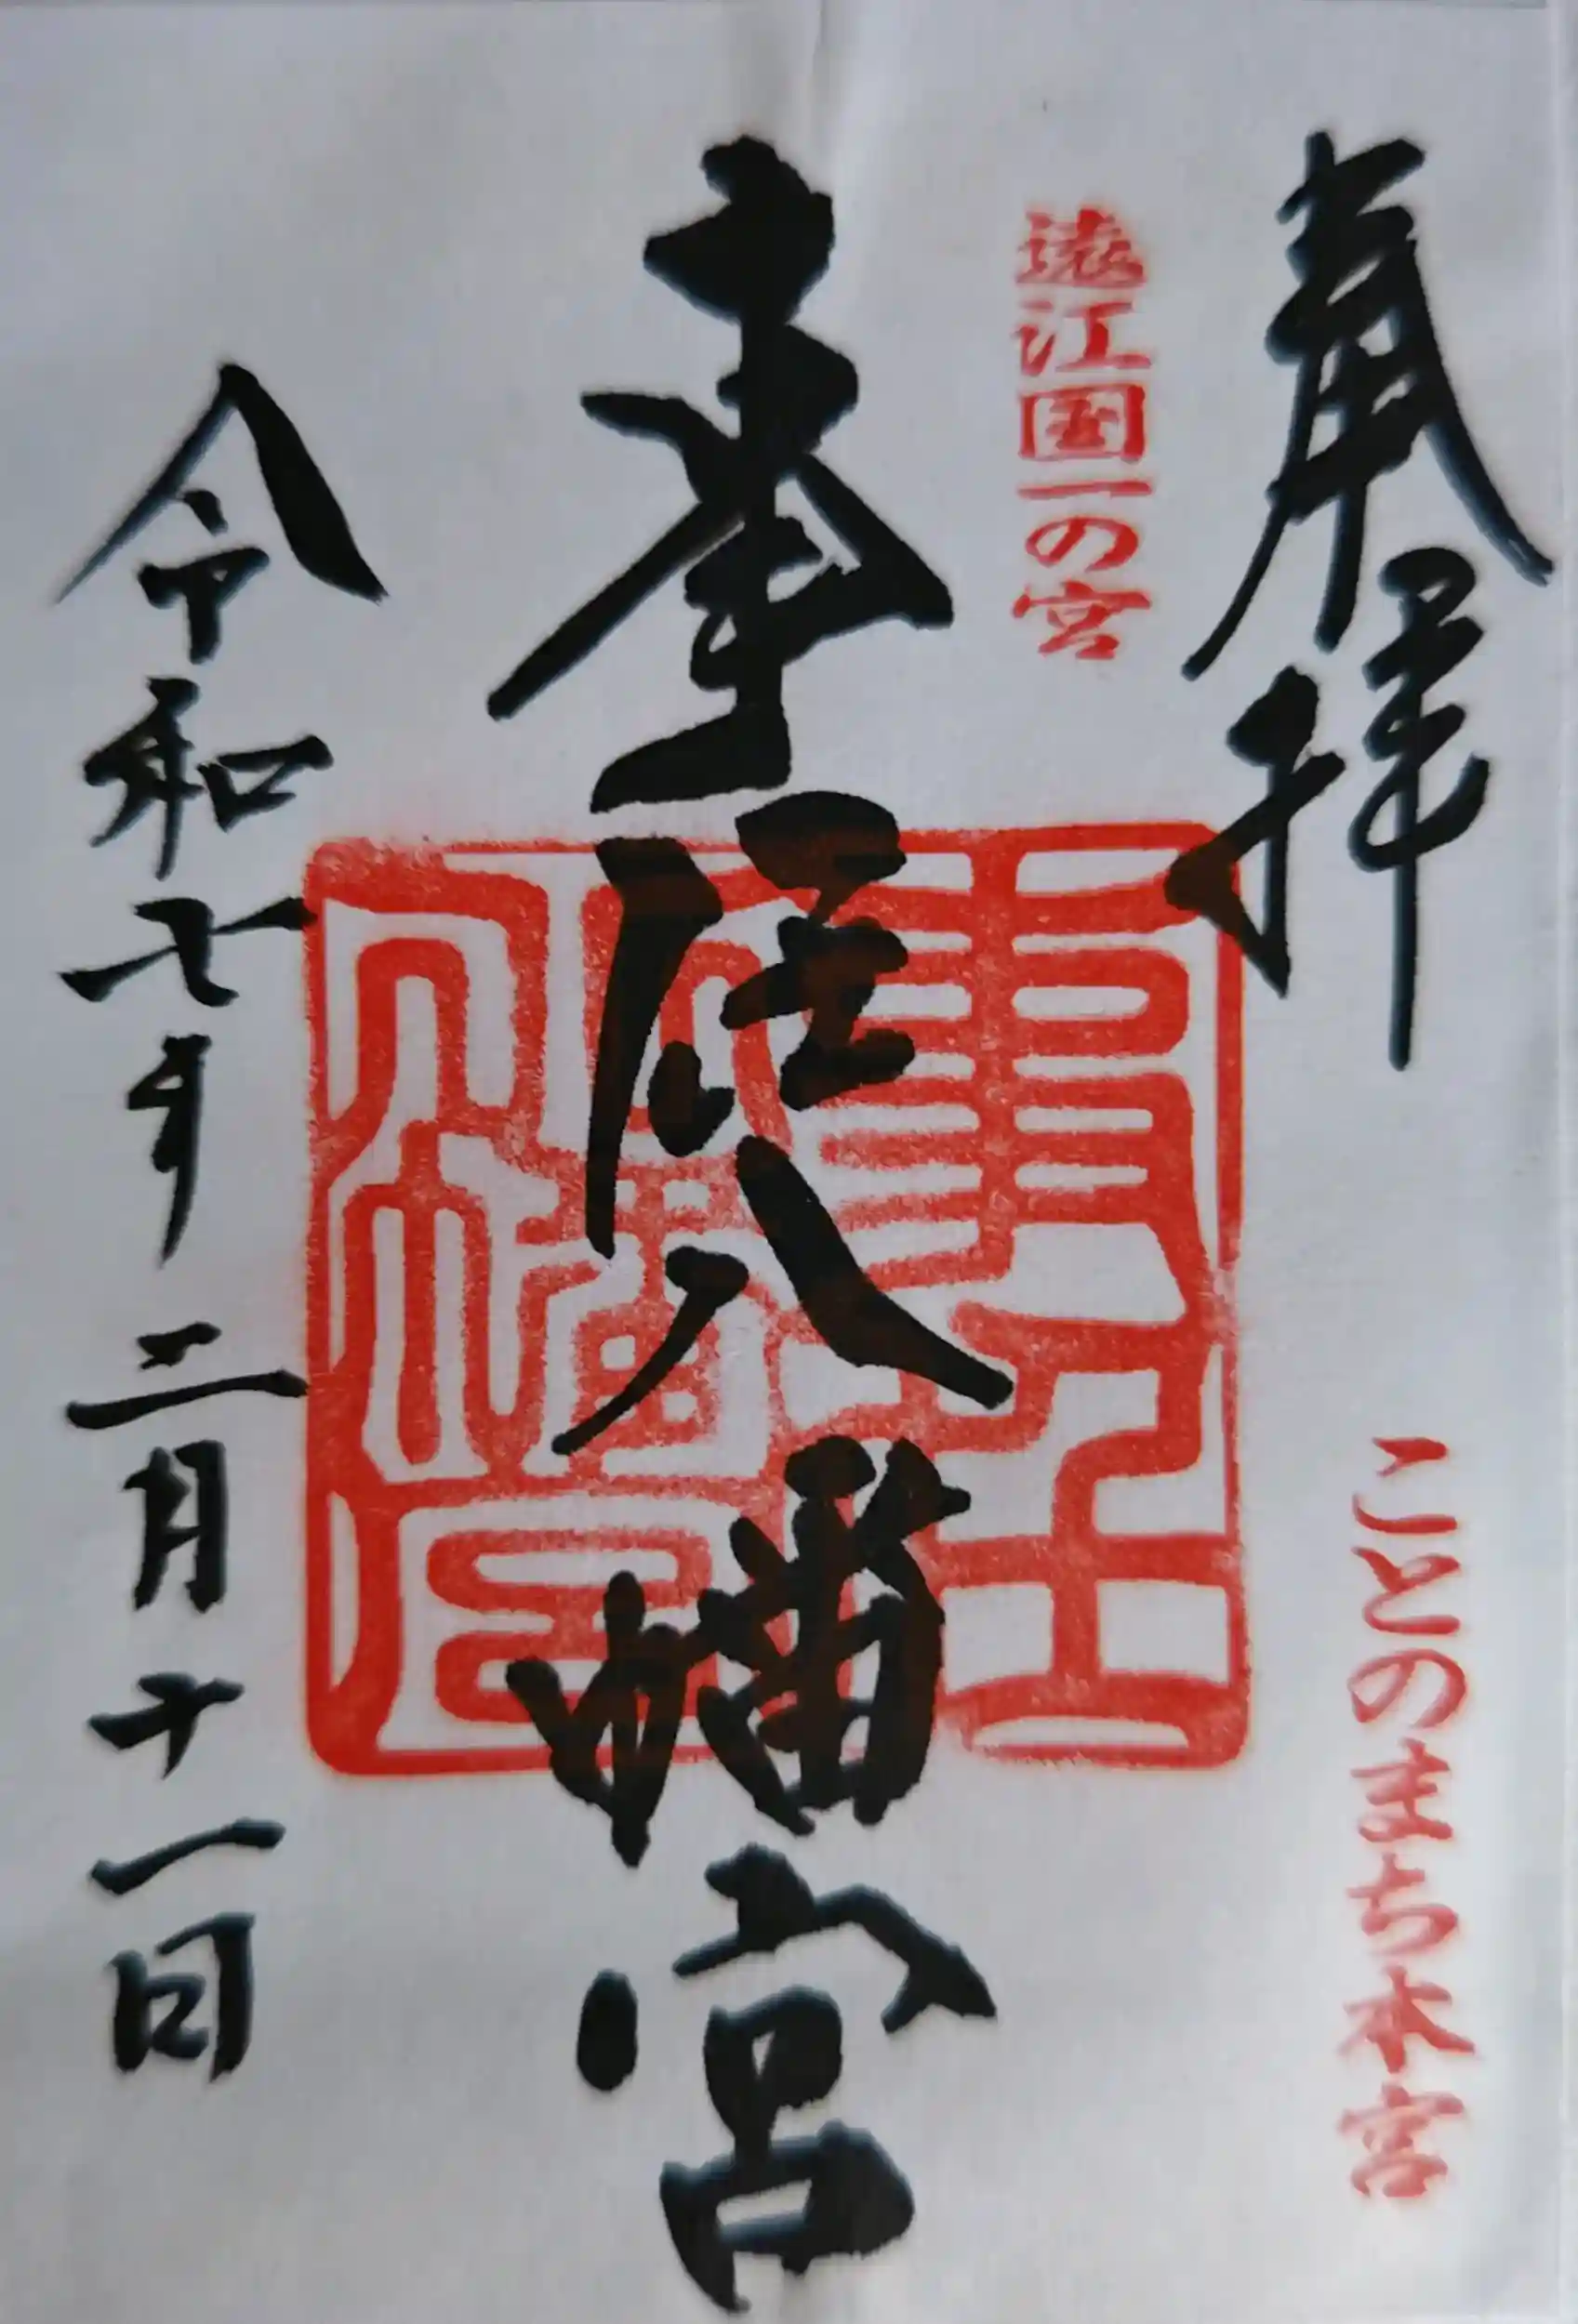 奉拝
ことのまち本宮
遠江国一の宮
事任八幡宮
事任
八幡宮
令和七年二月十一日